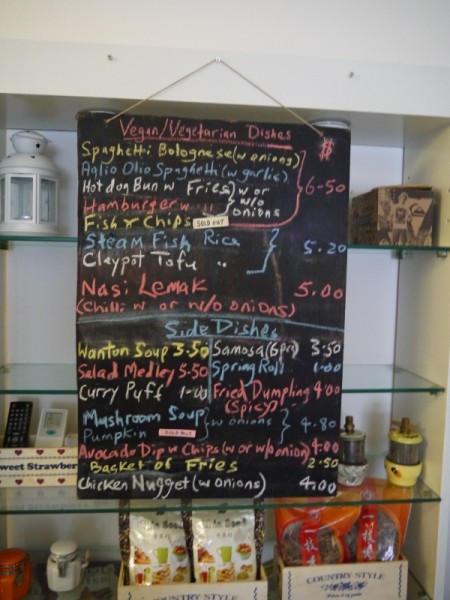 Vegan/Vegetarian Dishes
$
Spaghetti Bolognese (w onions)
Aglio Olio Spaghetti (w garlic)
Hotdog Bun w Fries w or
Hamburger w " w/o onions
6-50
Fish & Chips SOLD OUT
Steam Fish Rice
5.20
Claypot Tofu "
Nasi Lemak 5.00
(Chilli w or w/o onions)
Side Dishes
Wanton Soup 3.50 Samosa (6pcs) 3.50
Salad Medley 5.50 Spring Roll 1.00
Curry Puff 1.00 Fried Dumpling 4.00
(Spicy)
Mushroom Soup w onions 4.80
Pumpkin SOLD OUT
Avocado Dip w Chips (w or w/o onion) 4.00
Basket of Fries 2.50
Chicken Nugget (w onions) 4.00
Sweet Strawber
COUNTRY STYLE